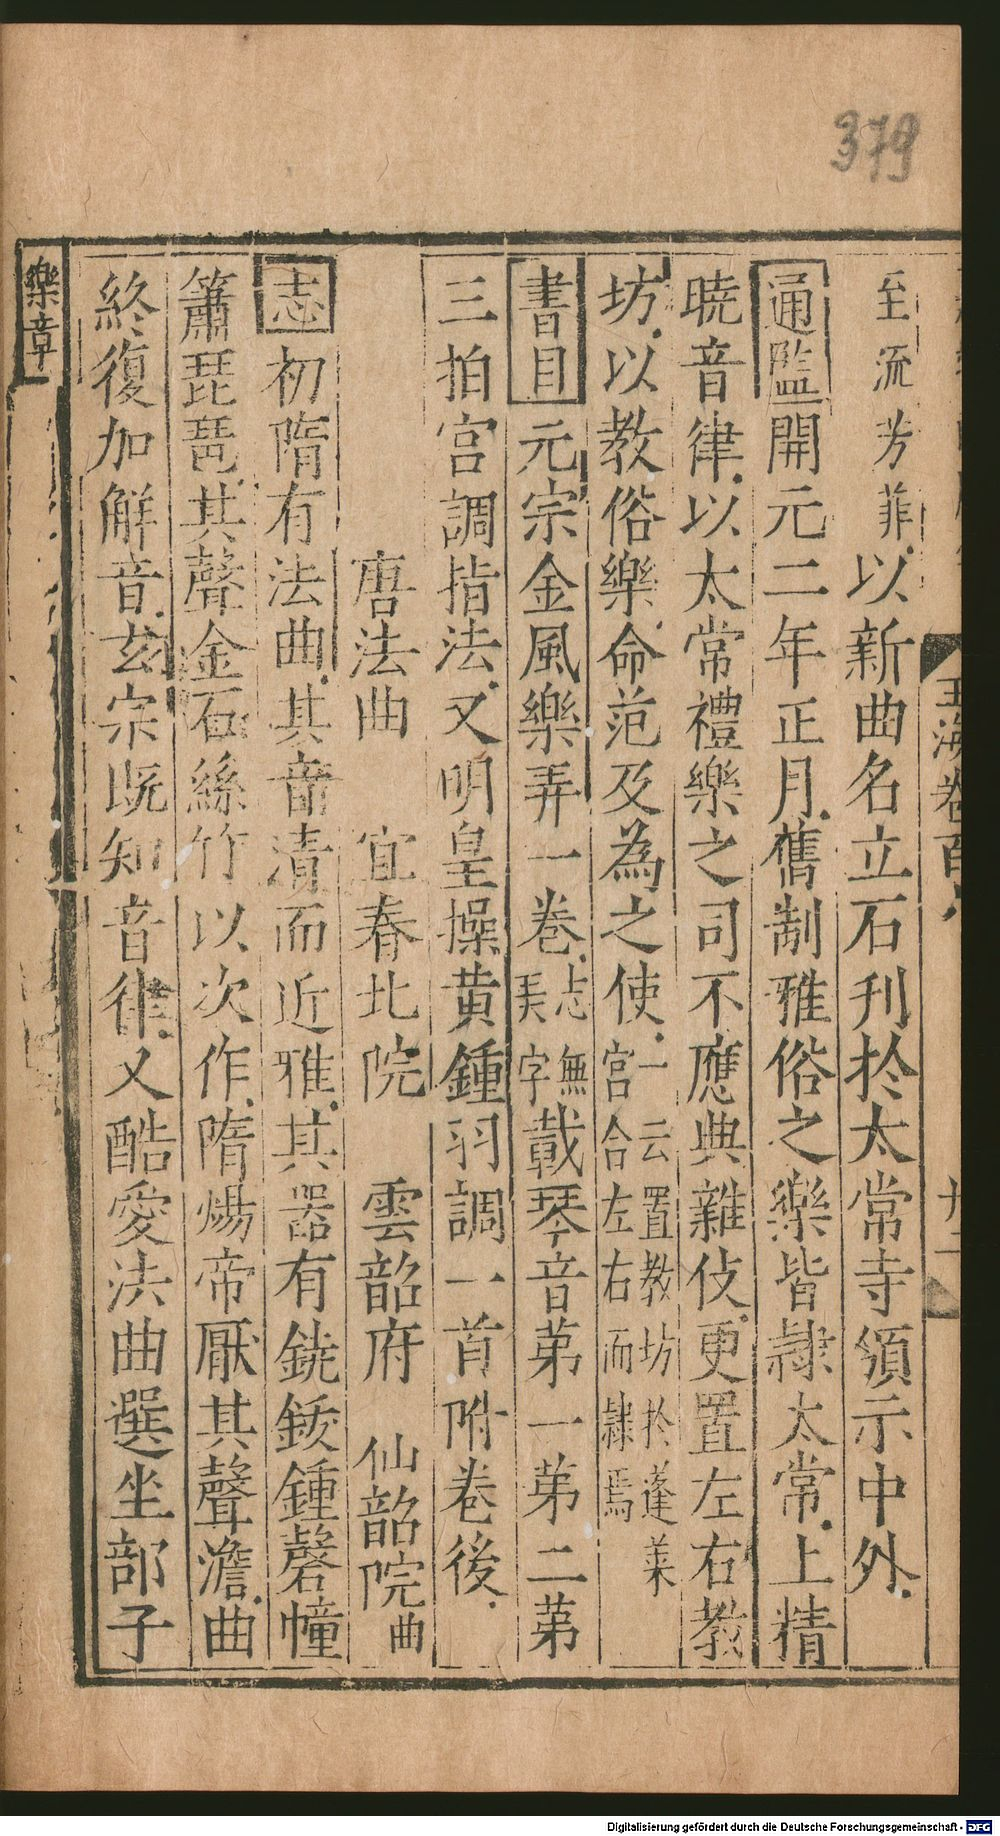 379
玉海卷百八
廿二
至流芳菲以新曲名立石刋於太常寺頒示中外
通監開元二年正月舊制雅俗之樂皆隷太常上精
曉音律以太常禮樂之司不應典雜伎更置左右教
坊以教俗樂命范及為之使一云置教坊於蓬萊宮合左右而隷焉
書目元宗金風樂弄一卷志無美字載琴音第一第二第
三拍宮調指法又明皇操黄鍾羽調一首附卷後
唐法曲 宜春北院 雲韶府 仙韶院曲
志初隋有法曲其音清而近雅其器有鐃鈸鍾磬幢
簫琵琶其聲金石絲竹以次作隋煬帝厭其聲澹曲
終復加解音玄宗既知音律又酷愛法曲選坐部子
樂章
Digitalisierung gefördert durch die Deutsche Forschungsgemeinschaft - DFG